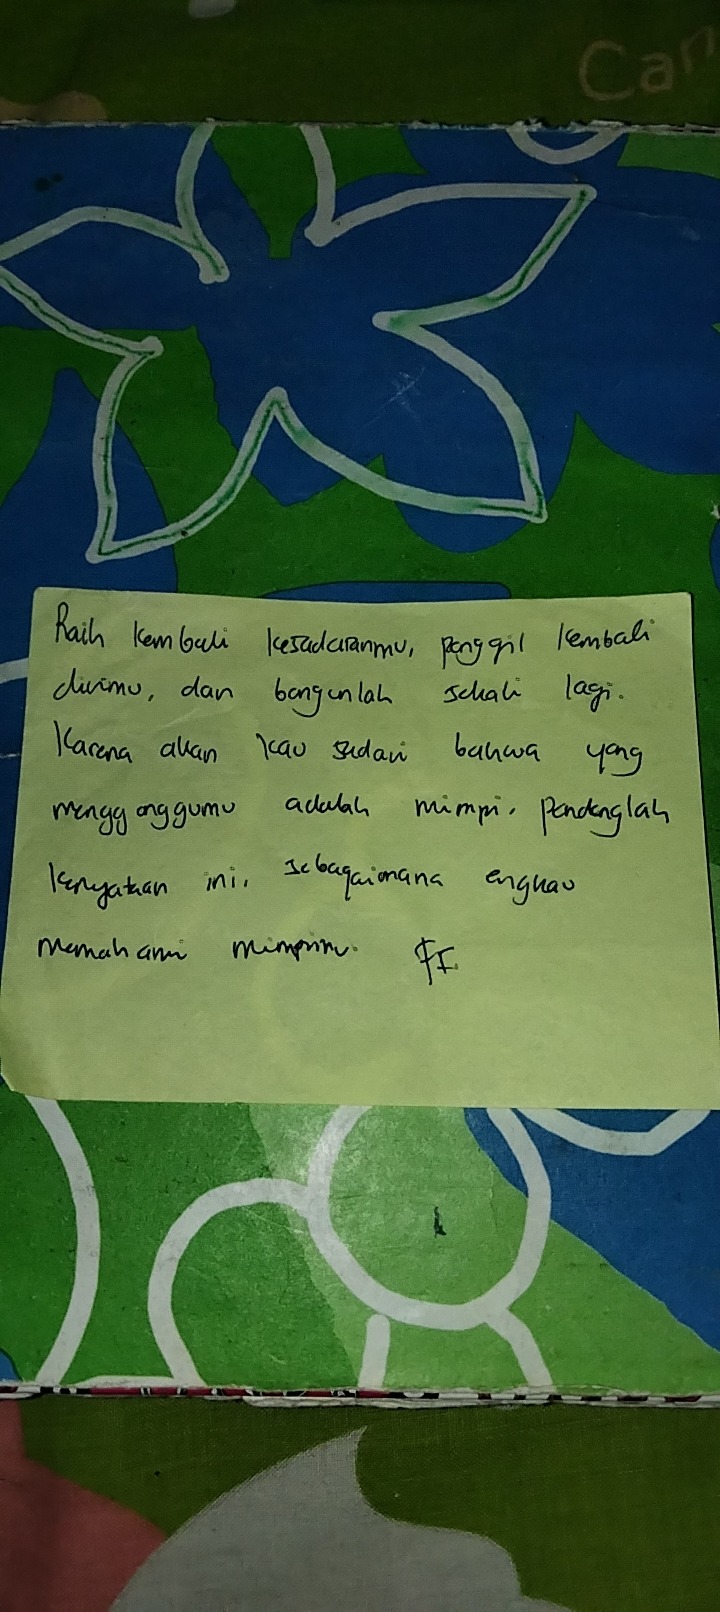 Can
Raih kembali kesadaranmu, panggil kembali
dirimu, dan bangunlah sekali lagi.
Karena akan kau sadari bahwa yang
mengganggumu adalah mimpi. pandanglah
kenyataan ini, sebagaimana engkau
memahami mimpimu.